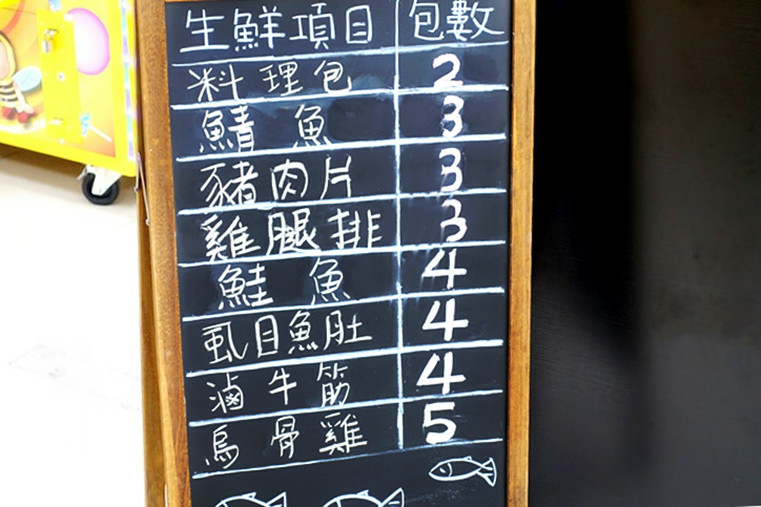 生鮮項目 包數
料理包 2
鯖魚 3
豬肉片 3
雞腿排 3
鮭魚 4
虱目魚肚 4
滷牛筋 4
烏骨雞 5